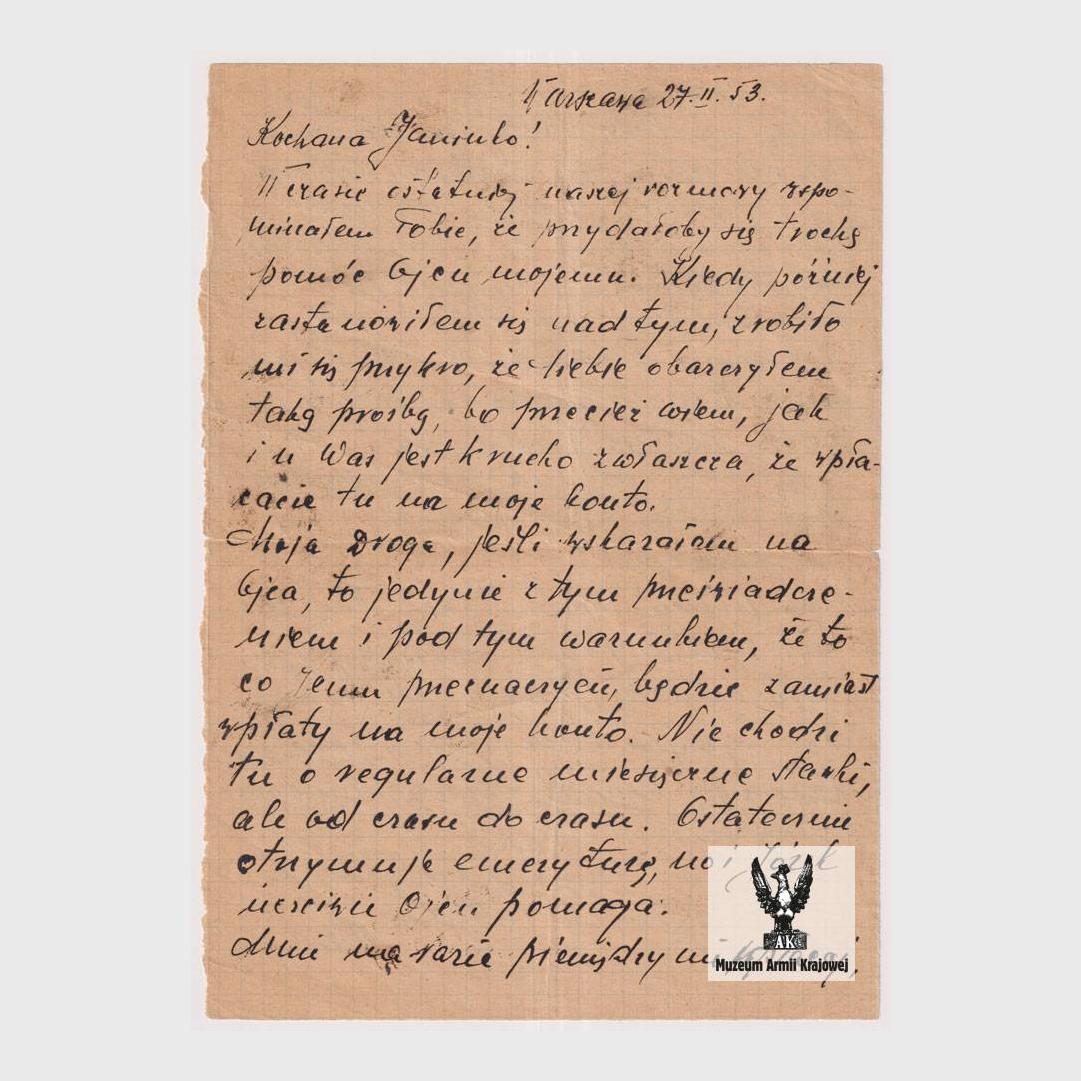 Warszawa 27.II.53.
Kochana Janinko!
W czasie ostatniej naszej rozmowy wspo-
minałem Tobie, że przydałoby się trochę
pomóc Ojcu mojemu. Kiedy później
zastanowiłem się nad tym, zrobiło
mi się przykro, że Ciebie obarczyłem
taką prośbą, bo przecież wiem, jak
i u Was jest krucho zwłaszcza, że wpła-
cacie tu na moje konto.
Moja Droga, jeśli wskazałem na
Ojca, to jedynie z tym przeświadcze-
niem i pod tym warunkiem, że to
co Jemu przeznaczycie, będzie zamiast
wpłaty na moje konto. Nie chodzi
tu o regularne miesięczne stawki,
ale od czasu do czasu. Ostatecznie
otrzymuje emeryturę, no i Józek
uczciwie Ojcu pomaga.
Mnie na razie pieniędzy nie wpłacaj,
AK
Muzeum Armii Krajowej